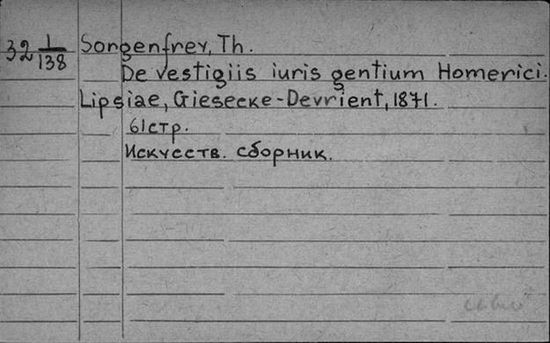 32 1/138 Sorgenfrey, Th.
De vestigiis iuris gentium Homerici.
Lipsiae, Giesecke-Devrient, 1871.
61стр.
Искусств. сборник.